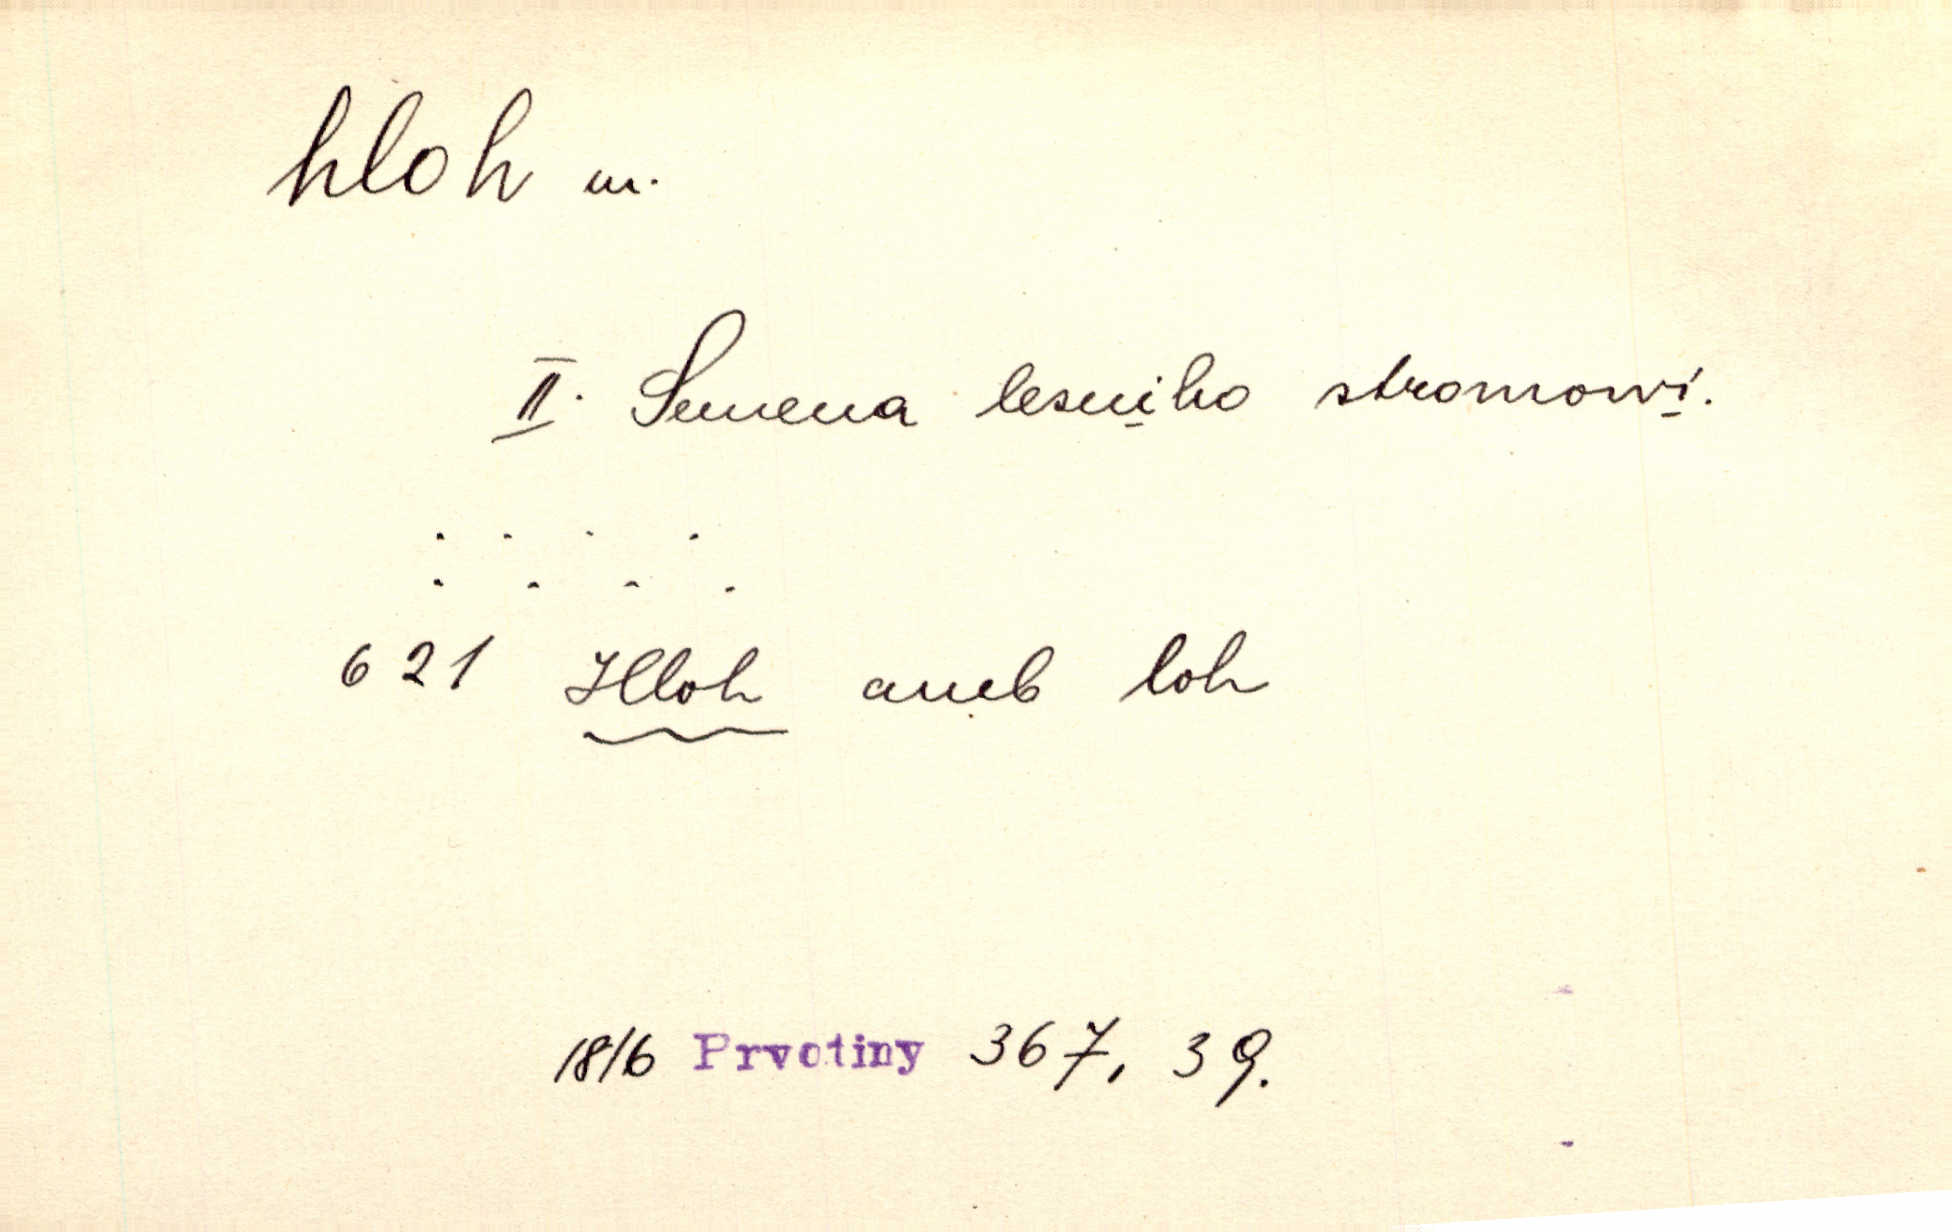 hloh m.
II. Semena lesniho stromowí.
. . . .
. . . .
621 Hloh aneb loh
1816 Prvotiny 367, 39.